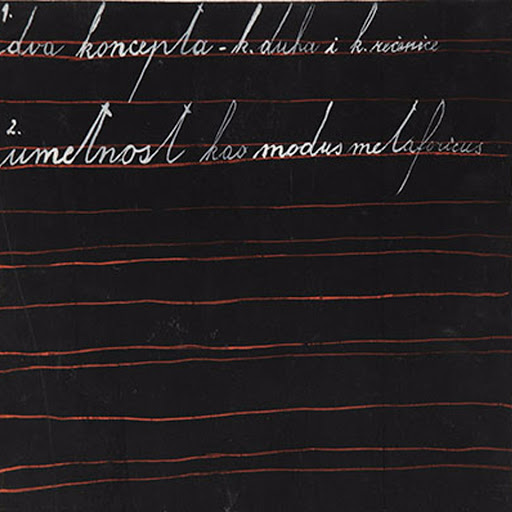 1.
dva koncepta - k. duha i k. rečenice
2.
umetnost kao modus metaforicus